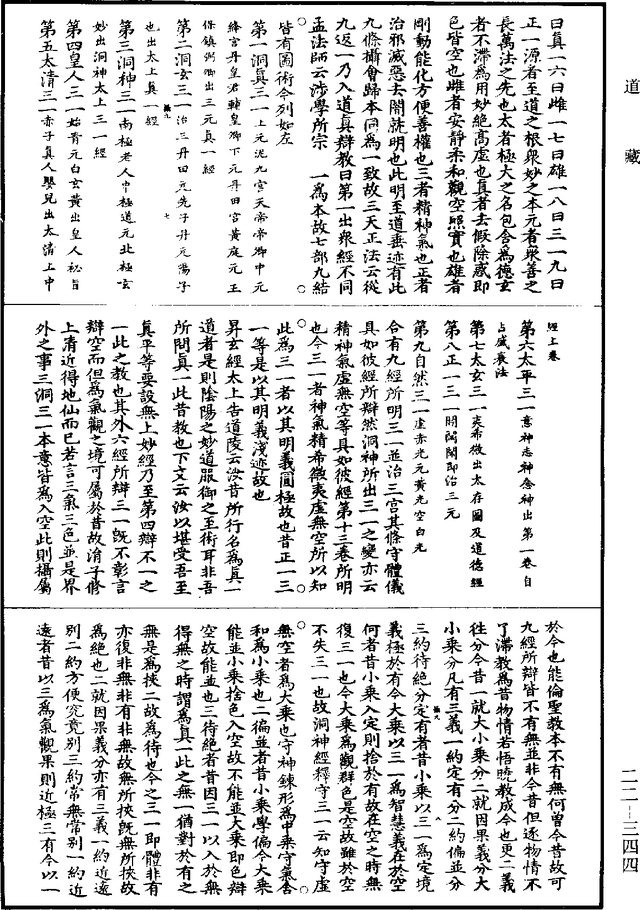 道藏
曰真一六曰雌一七曰雄一八曰三一九曰
正一源者至道之根衆妙之本元者衆善之
長萬法之先也太者極大之名包含為德玄
者不滯為用妙絶高虛也真者去假除惑即
色皆空也雌者安靜柔和觀空照實也雄者
剛動能化方便善權也三者精神氣也正者
治邪滅惡去闇就明也此明至道垂迹有此
九條攝會歸本同為一致故三天正法云從
九返一乃入道真辯教曰第一出衆經不同
孟法師云涉學所宗一為本故七部九結
皆有圖術今列如左
第一洞真三一上元泥九宮天帝帝卿中元
絳宮丹皇君輔皇卿下元丹田宮黃庭元王
保鎮弼卿出三元真一經
第二洞玄三一治三丹田元先子丹元陽子
也出太上真一經
第三洞神三一南極老人中極道元北極玄
妙出洞神太上三一經
第四皇人三一始青元白玄黃出皇人祕旨
第五太清三一赤子真人嬰兒出太清上中
經上卷
第六太平三一意神志神念神出第一卷自
占盛衰法
第七太玄三一夷希微出太存圖及道德經
第八正一三一出閉闔即治三元
第九自然三一虛赤光元黃光空白光
合有九經所明三一並治三宮其條守體儀
具如彼經所辯然洞神所出三一之變亦云
精神氣虛無空等具如彼經第十三卷所明
也今三一者神氣精希微夷虛無空所以知
此為三一者以其明義圓極故也昔正一三
一等是以其明義淺迹故也
昇玄經太上告道陵云汝昔所行名為真一
道者是則陰陽之妙道服御之至術耳非吾
所問真一此昔教也下文云汝以堪受吾至
真平等要設無上妙經乃至第四辯不一之
一此之教也其外六經所辯三一既不彰言
辯空而但為氣觀之境可屬於昔故涓子修
上清近得地仙而已若言三氣三色並是界
外之事三洞三一本意皆為入空此則攝屬
於今也能倫聖教本不有無何曾今昔故可
九經所辯皆不有無並非今昔但逐物情不
了滯教為昔物情若悟曉教成今也更二義
往分今昔一就大小乘分二就因果義分大
小乘分凡有三義一約定有分二約偏並分
三約待絶分定有者昔小乘以三一為定境
義極於有今大乘以三一為智慧義在於空
何者昔小乘入定則捨於有故在空之時無
復三一也今大乘為觀群色是空故雖於空
不失三一也故洞神經釋守三一云知守虛
無空者為大乘也守神鍊形為中乘守氣含
和為小乘也二徧並者昔小乘學偏今大乘
能並小乘捨色入空故不能並大乘即色辯
空故能並也三待絶者昔因三一以入於無
得無之時謂為真一此之無一猶對於有之
無是為挾二故為待也今之三一即體非有
亦復非無非有非無故無所挾既無所挾故
為絶也二就因果義分亦有三義一約近遠
別二約方便究竟別三約常無常別一約近
遠者昔以三為氣觀果則近極三有今以一
二一二—三四四